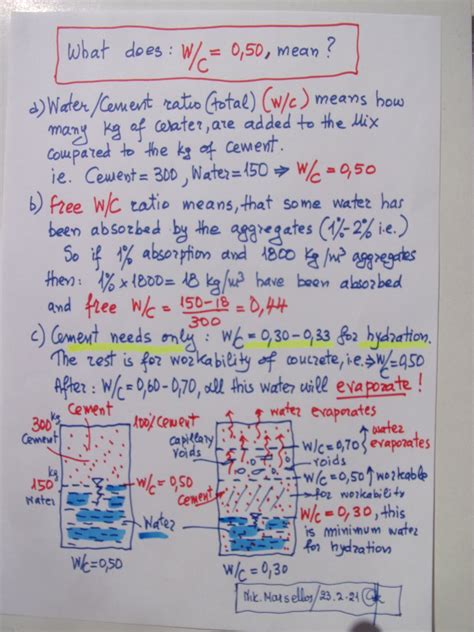 What does: W/C = 0,50, mean?
a) Water/Cement ratio (total) (W/C) means how
many kg of water, are added to the Mix
compared to the kg of cement.
ie. Cement = 300, Water = 150 ⇒ W/C = 0,50
b) free W/C ratio means, that some water has
been absorbed by the aggregates (1%-2% i.e.)
So if 1% absorption and 1800 kg/m³ aggregates
then: 1% x 1800 = 18 kg/m³ have been absorbed
and free W/C = 150-18/300 = 0,44
c) Cement needs only: W/C = 0,30-0,33 for hydration.
The rest is for workability of concrete, i.e. ⇒ W/C = 0,50
After: W/C = 0,60-0,70, all this water will evaporate!
Cement
300 kg
Cement
150 kg
Water
W/C = 0,50
W/C = 0,50
Water
100% Cement
water evaporates
capillary
voids
Cement
W/C = 0,30
water
W/C = 0,70 evaporates
voids
W/C = 0,50 workable
for workability
W/C = 0,30, this
is minimum water
for hydration
Nik. Marsellos/23.2-21